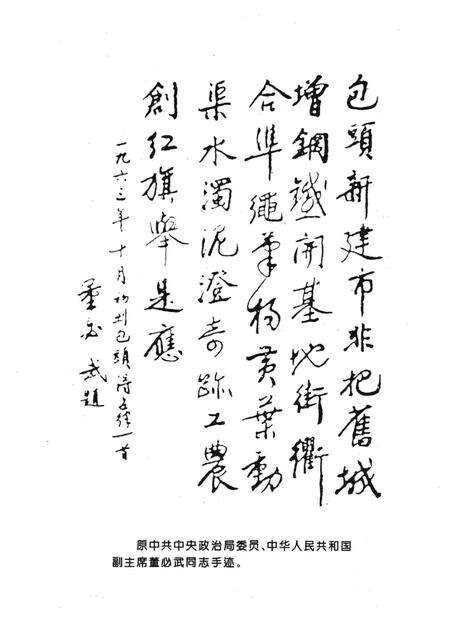 包頭新建市非把舊城
增鋼鐵開基地街衢
合準繩楊黃葉動
渠水濁泥澄奇跡工農
創紅旗舉是應
一九六三年十月初到包頭得五律一首
董必武題
原中共中央政治局委员、中华人民共和国
副主席董必武同志手迹。